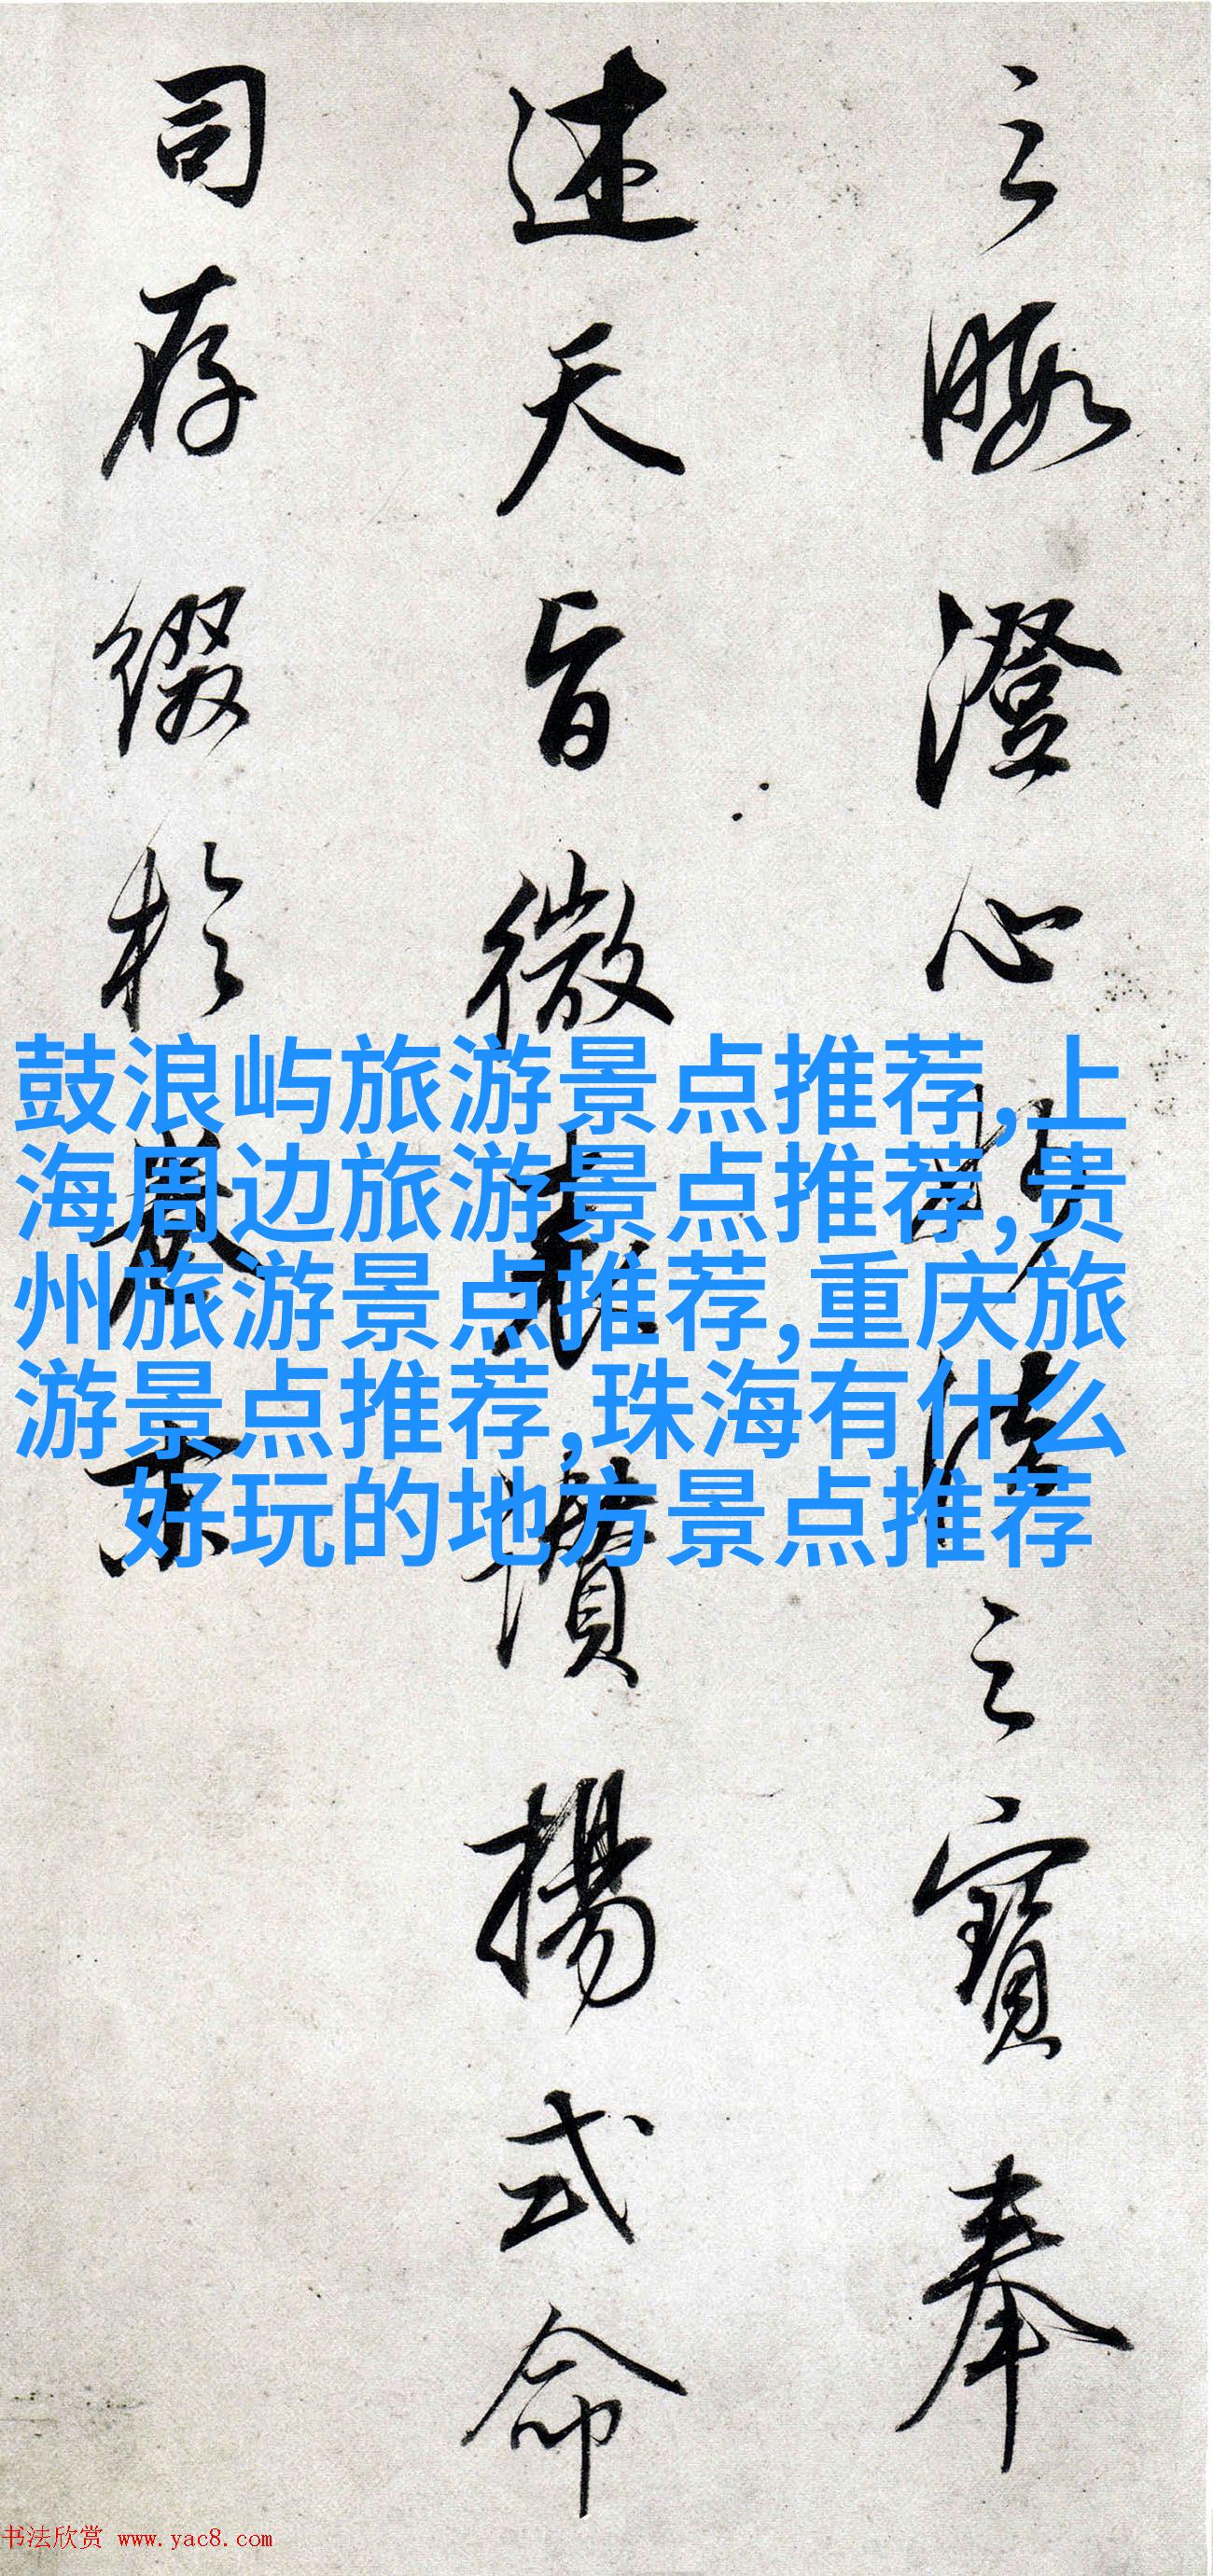 之暇澄心 法之寶奉
述天旨微 讚揚式命
司存綴於卷末
鼓浪屿旅游景点推荐,上
海周边旅游景点推荐,贵
州旅游景点推荐,重庆旅
游景点推荐,珠海有什么
好玩的地方景点推荐
书法欣赏 www.yac8.com